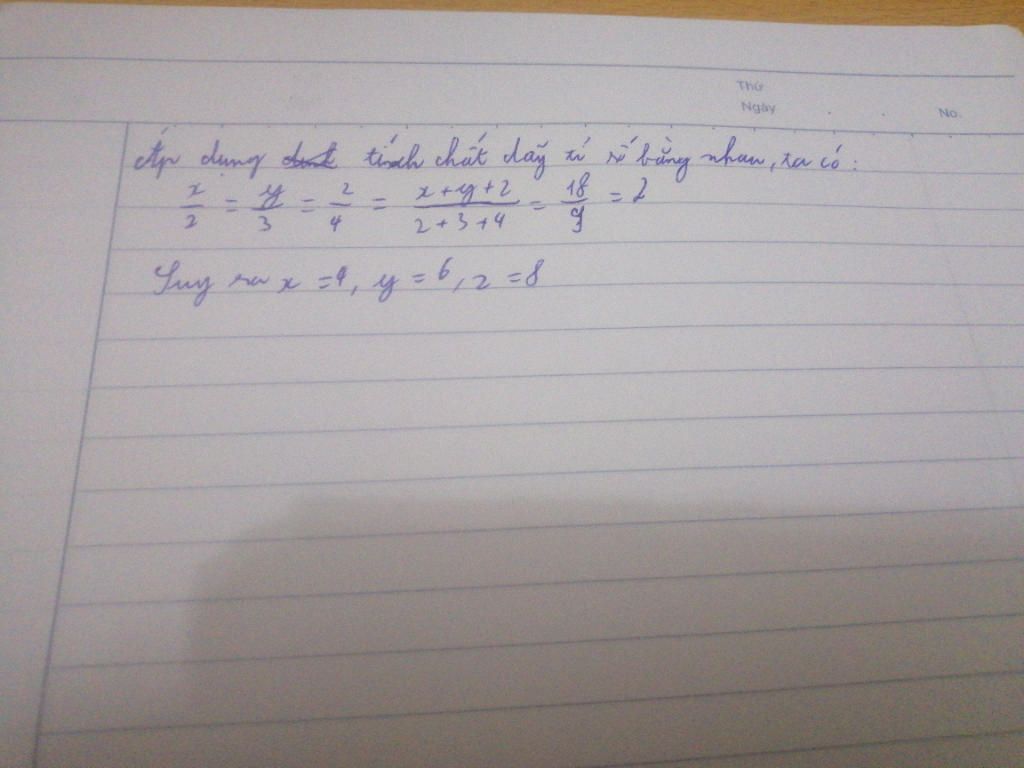 Thứ
Ngày . . No.
Áp dụng tính chất dãy tỉ số bằng nhau, ta có:
x/2 = y/3 = z/4 = x+y+z/2+3+4 = 18/9 = 2
Suy ra x = 4, y = 6, z = 8